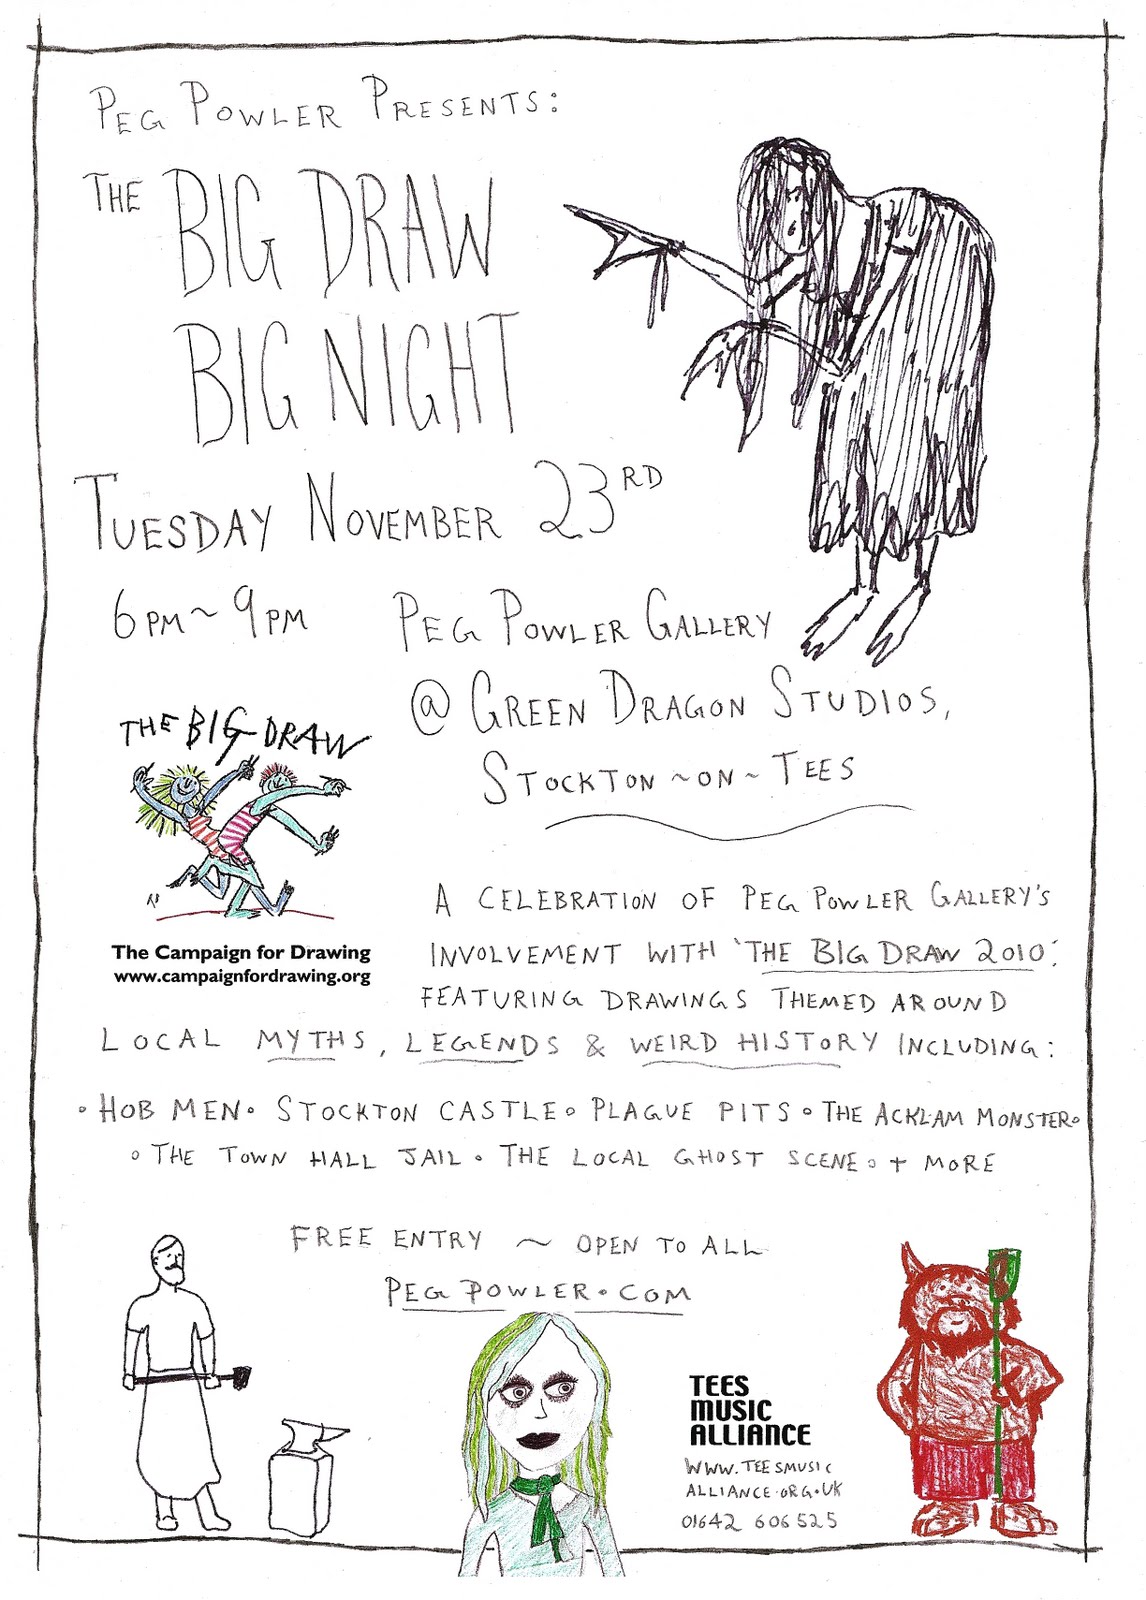 PEG POWLER PRESENTS:
THE BIG DRAW
BIG NIGHT
TUESDAY NOVEMBER 23RD
6PM~9PM
PEG POWLER GALLERY
@ GREEN DRAGON STUDIOS,
STOCKTON~ON~TEES
THE BIG DRAW
The Campaign for Drawing
www.campaignfordrawing.org
A CELEBRATION OF PEG POWLER GALLERY'S
INVOLVEMENT WITH 'THE BIG DRAW 2010',
FEATURING DRAWINGS THEMED AROUND
LOCAL MYTHS, LEGENDS & WEIRD HISTORY INCLUDING:
• HOB MEN • STOCKTON CASTLE • PLAGUE PITS • THE ACKLAM MONSTER •
• THE TOWN HALL JAIL • THE LOCAL GHOST SCENE • + MORE
FREE ENTRY ~ OPEN TO ALL
PEG POWLER.COM
TEES
MUSIC
ALLIANCE
WWW.TEESMUSIC
ALLIANCE.ORG.UK
01642 606525